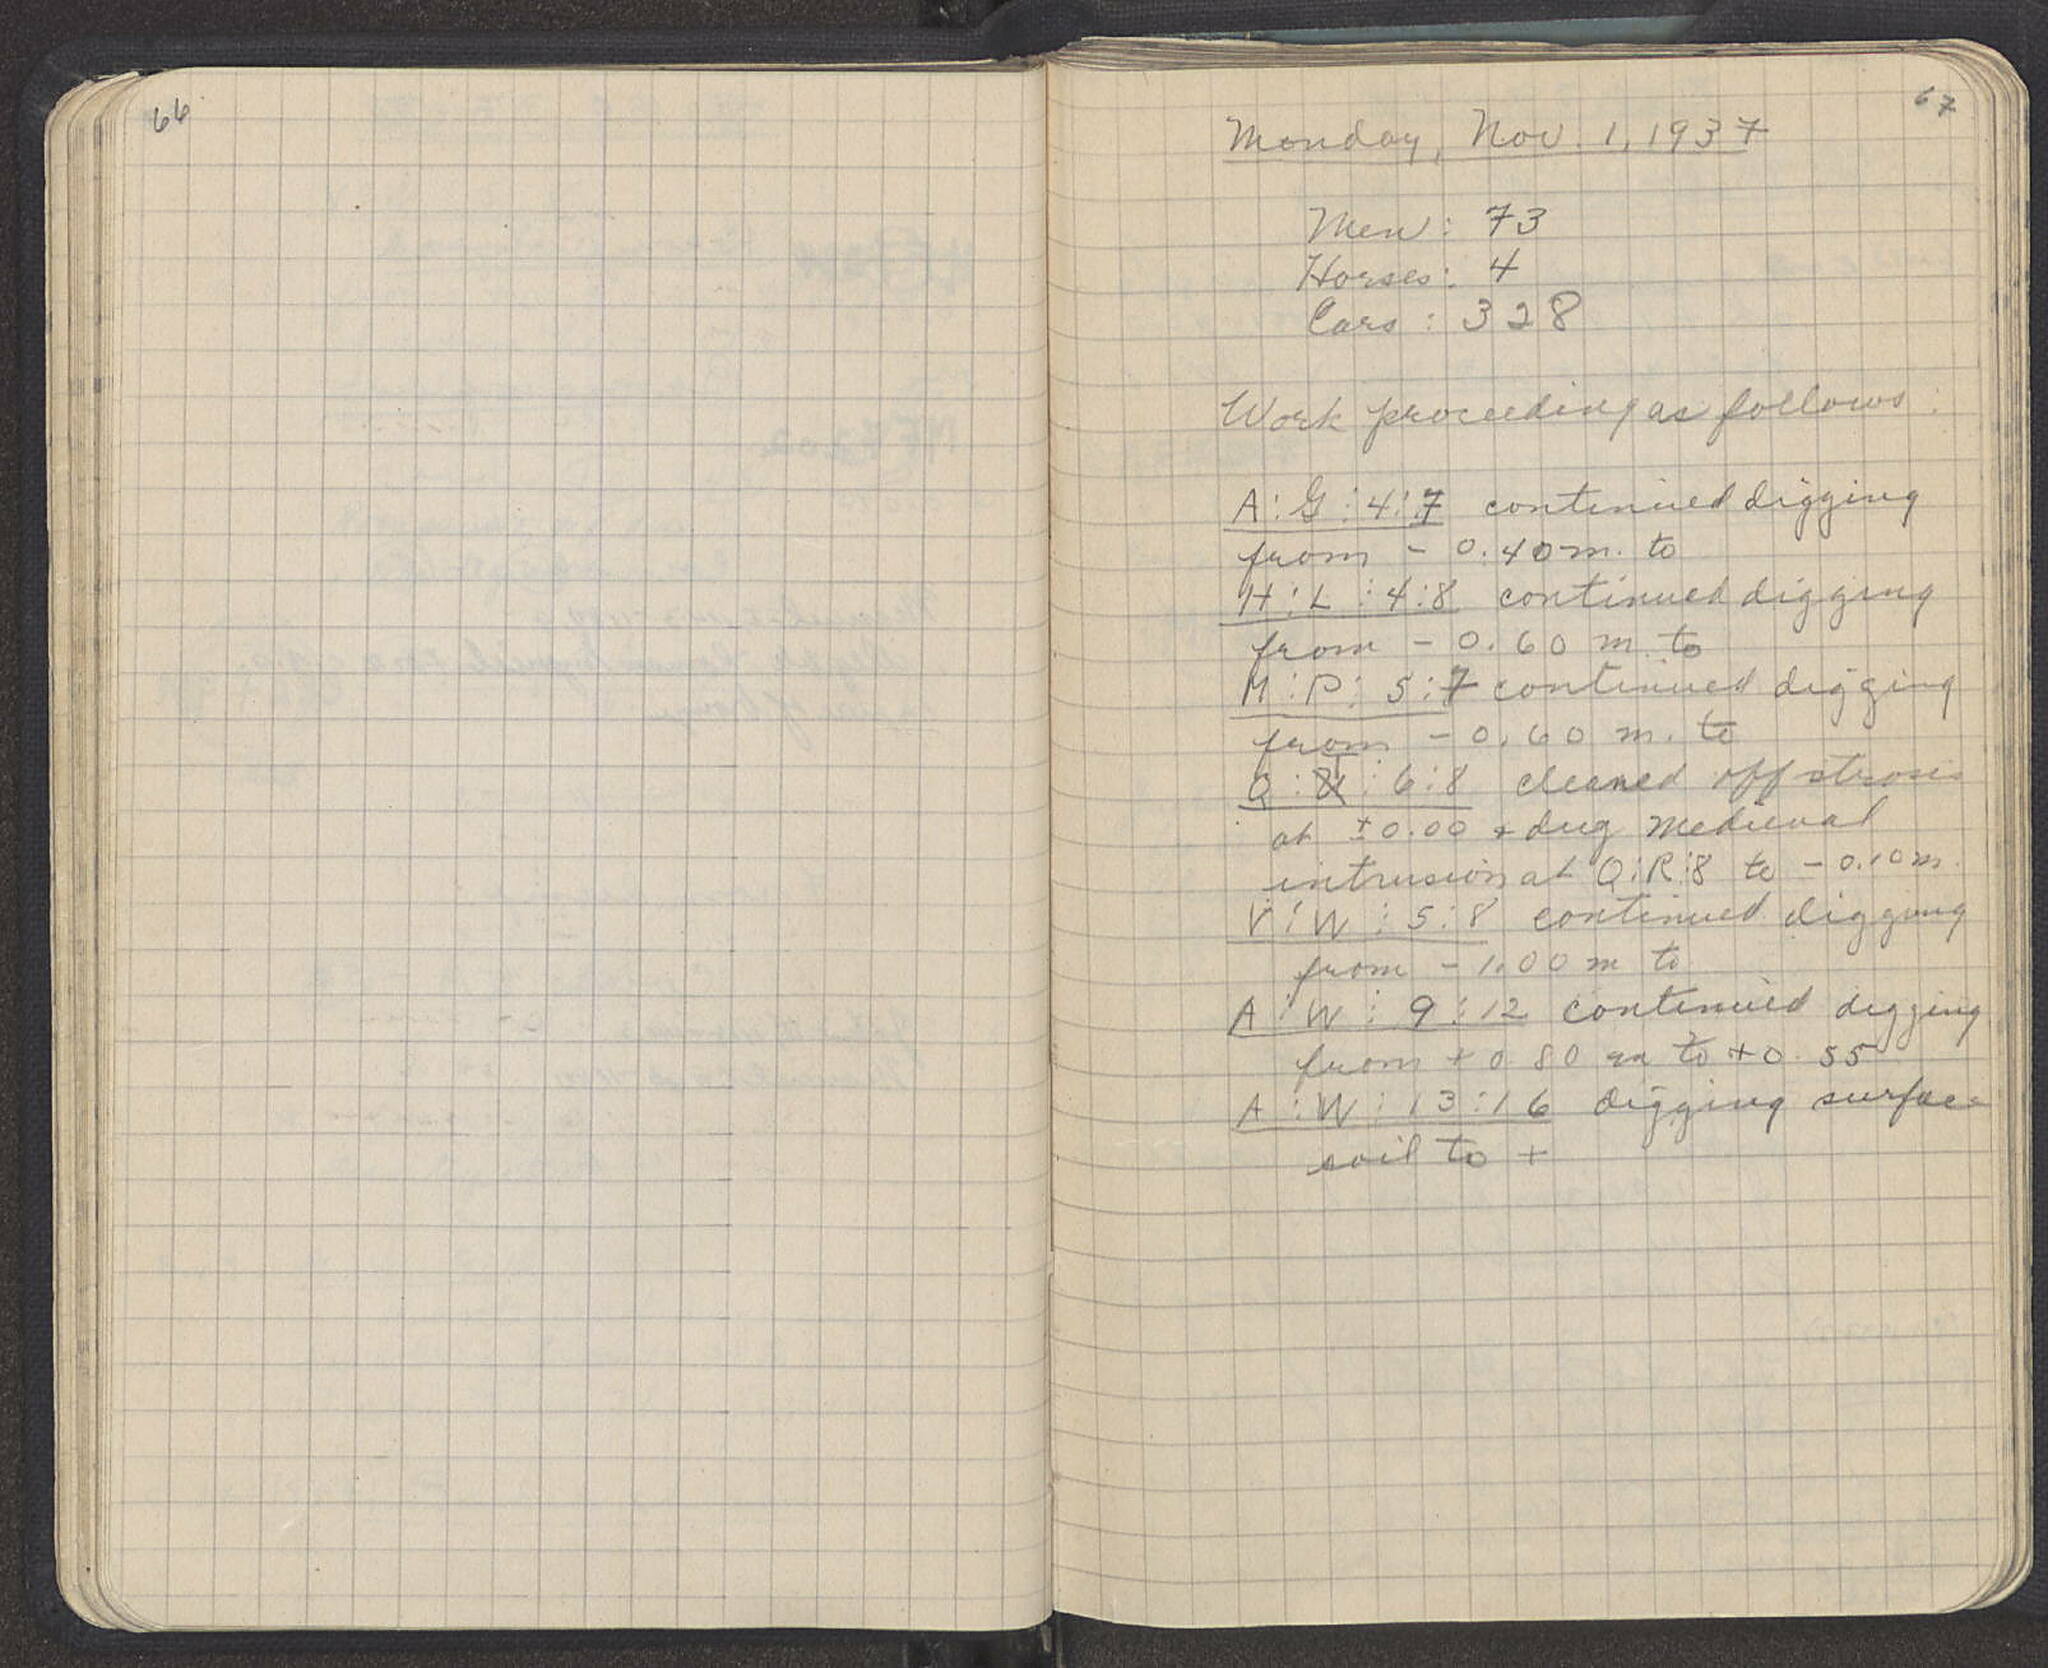 66
67
Monday, Nov. 1, 1937
Men: 73
Horses: 4
Cars: 328
Work proceeding as follows:
A:G:4:7 continued digging
from - 0.40 m. to
H:L:4:8 continued digging
from - 0.60 m. to
M:P:5:7 continued digging
from - 0.60 m. to
Q:T:6:8 cleaned off strosis
at ±0.00 + dug medieval
intrusion at Q:R:8 to - 0.10 m.
V:W:5:8 continued digging
from - 1.00 m to
A:W:9:12 continued digging
from + 0.80 m to + 0.55
A:W:13:16 digging surface
soil to +